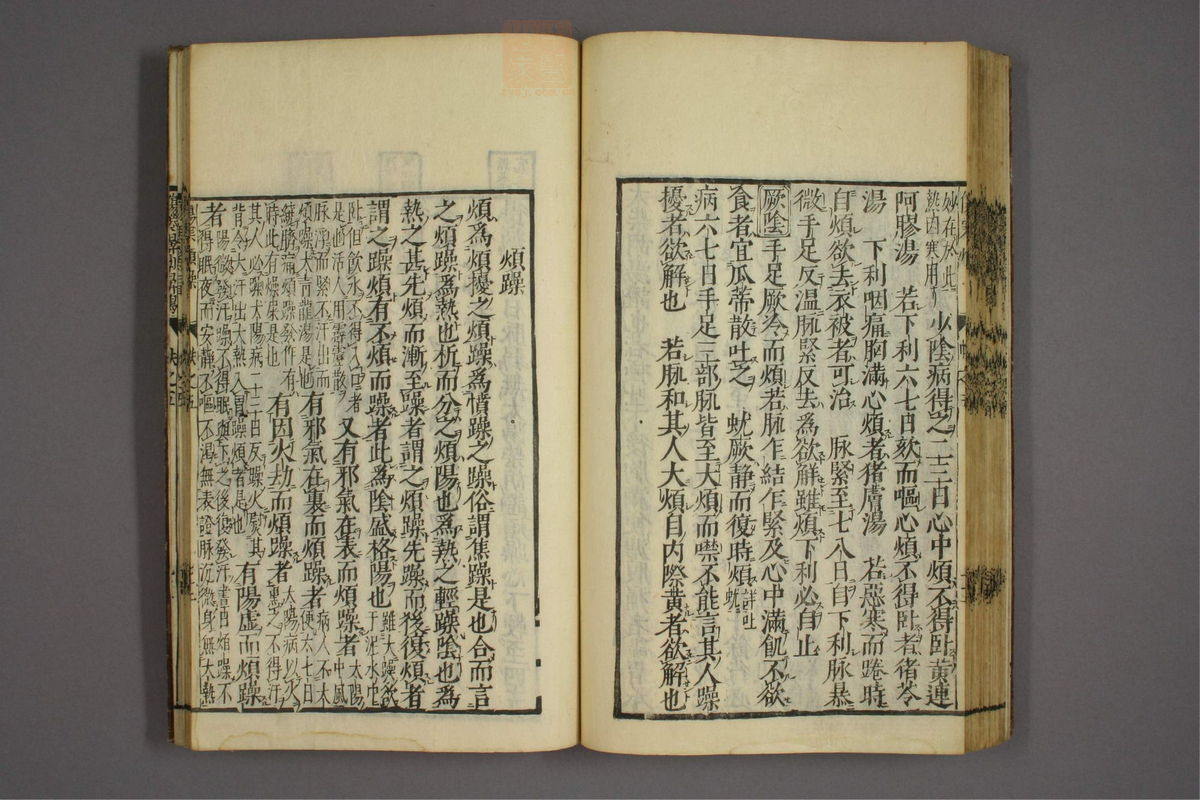 妙在於此
熱因寒用
少陰病得之二三日心中煩不得臥黃連
阿膠湯　若下利六七日欬而嘔心煩不得臥者猪苓
湯　下利咽痛胸滿心煩者猪膚湯　若惡寒而踡時
自煩欲去衣被者可治　脉緊至七八日自下利脉暴
微手足反温脉緊反去為欲解雖煩下利必自止
厥陰手足厥冷而煩若脉乍結乍緊及心中滿飢不欲
食者宜瓜蒂散吐之　蚘厥静而復時煩
病六七日手足三部脉皆至大煩而噤不能言其人躁
擾者欲解也　若脉和其人大煩自内際黃者欲解也
煩躁
煩為煩擾之煩躁為憤躁之躁俗謂焦躁是也合而言
之煩躁為熱也析而分之煩陽也為熱之輕躁陰也為
熱之甚先煩而漸至躁者謂之煩躁先躁而後復煩者
謂之躁煩有不煩而躁者此為陰盛格陽也
雖大躁欲
于泥水中
臥但飲水不得入口者
是也
又有邪氣在表而煩躁者
太陽
中風
脉浮而緊不汗出而
煩躁大青龍湯是也
有邪氣在裏而煩躁者
病人不大
便六七日
繞臍痛煩躁發作有
時此有燥屎是也
有因火劫而煩躁者
太陽病以火
熏之不得汗
其人必躁太陽病二十二日反躁火熨其
背令大汗出大熱入胃躁煩者是也
有陽虚而煩躁
者
陽微發汗躁不得眠與下之後復發汗晝日煩躁不
得眠夜而安静不嘔不渴無表證脉沉微身無大熱